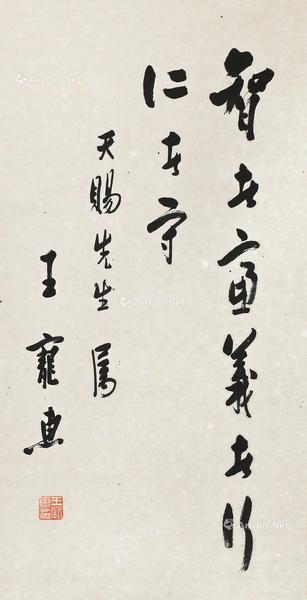 智者慮義者行
仁者守
天賜先生属
王寵惠
Artron.Net
Artron.Net
Artron.Net
Artron.Net